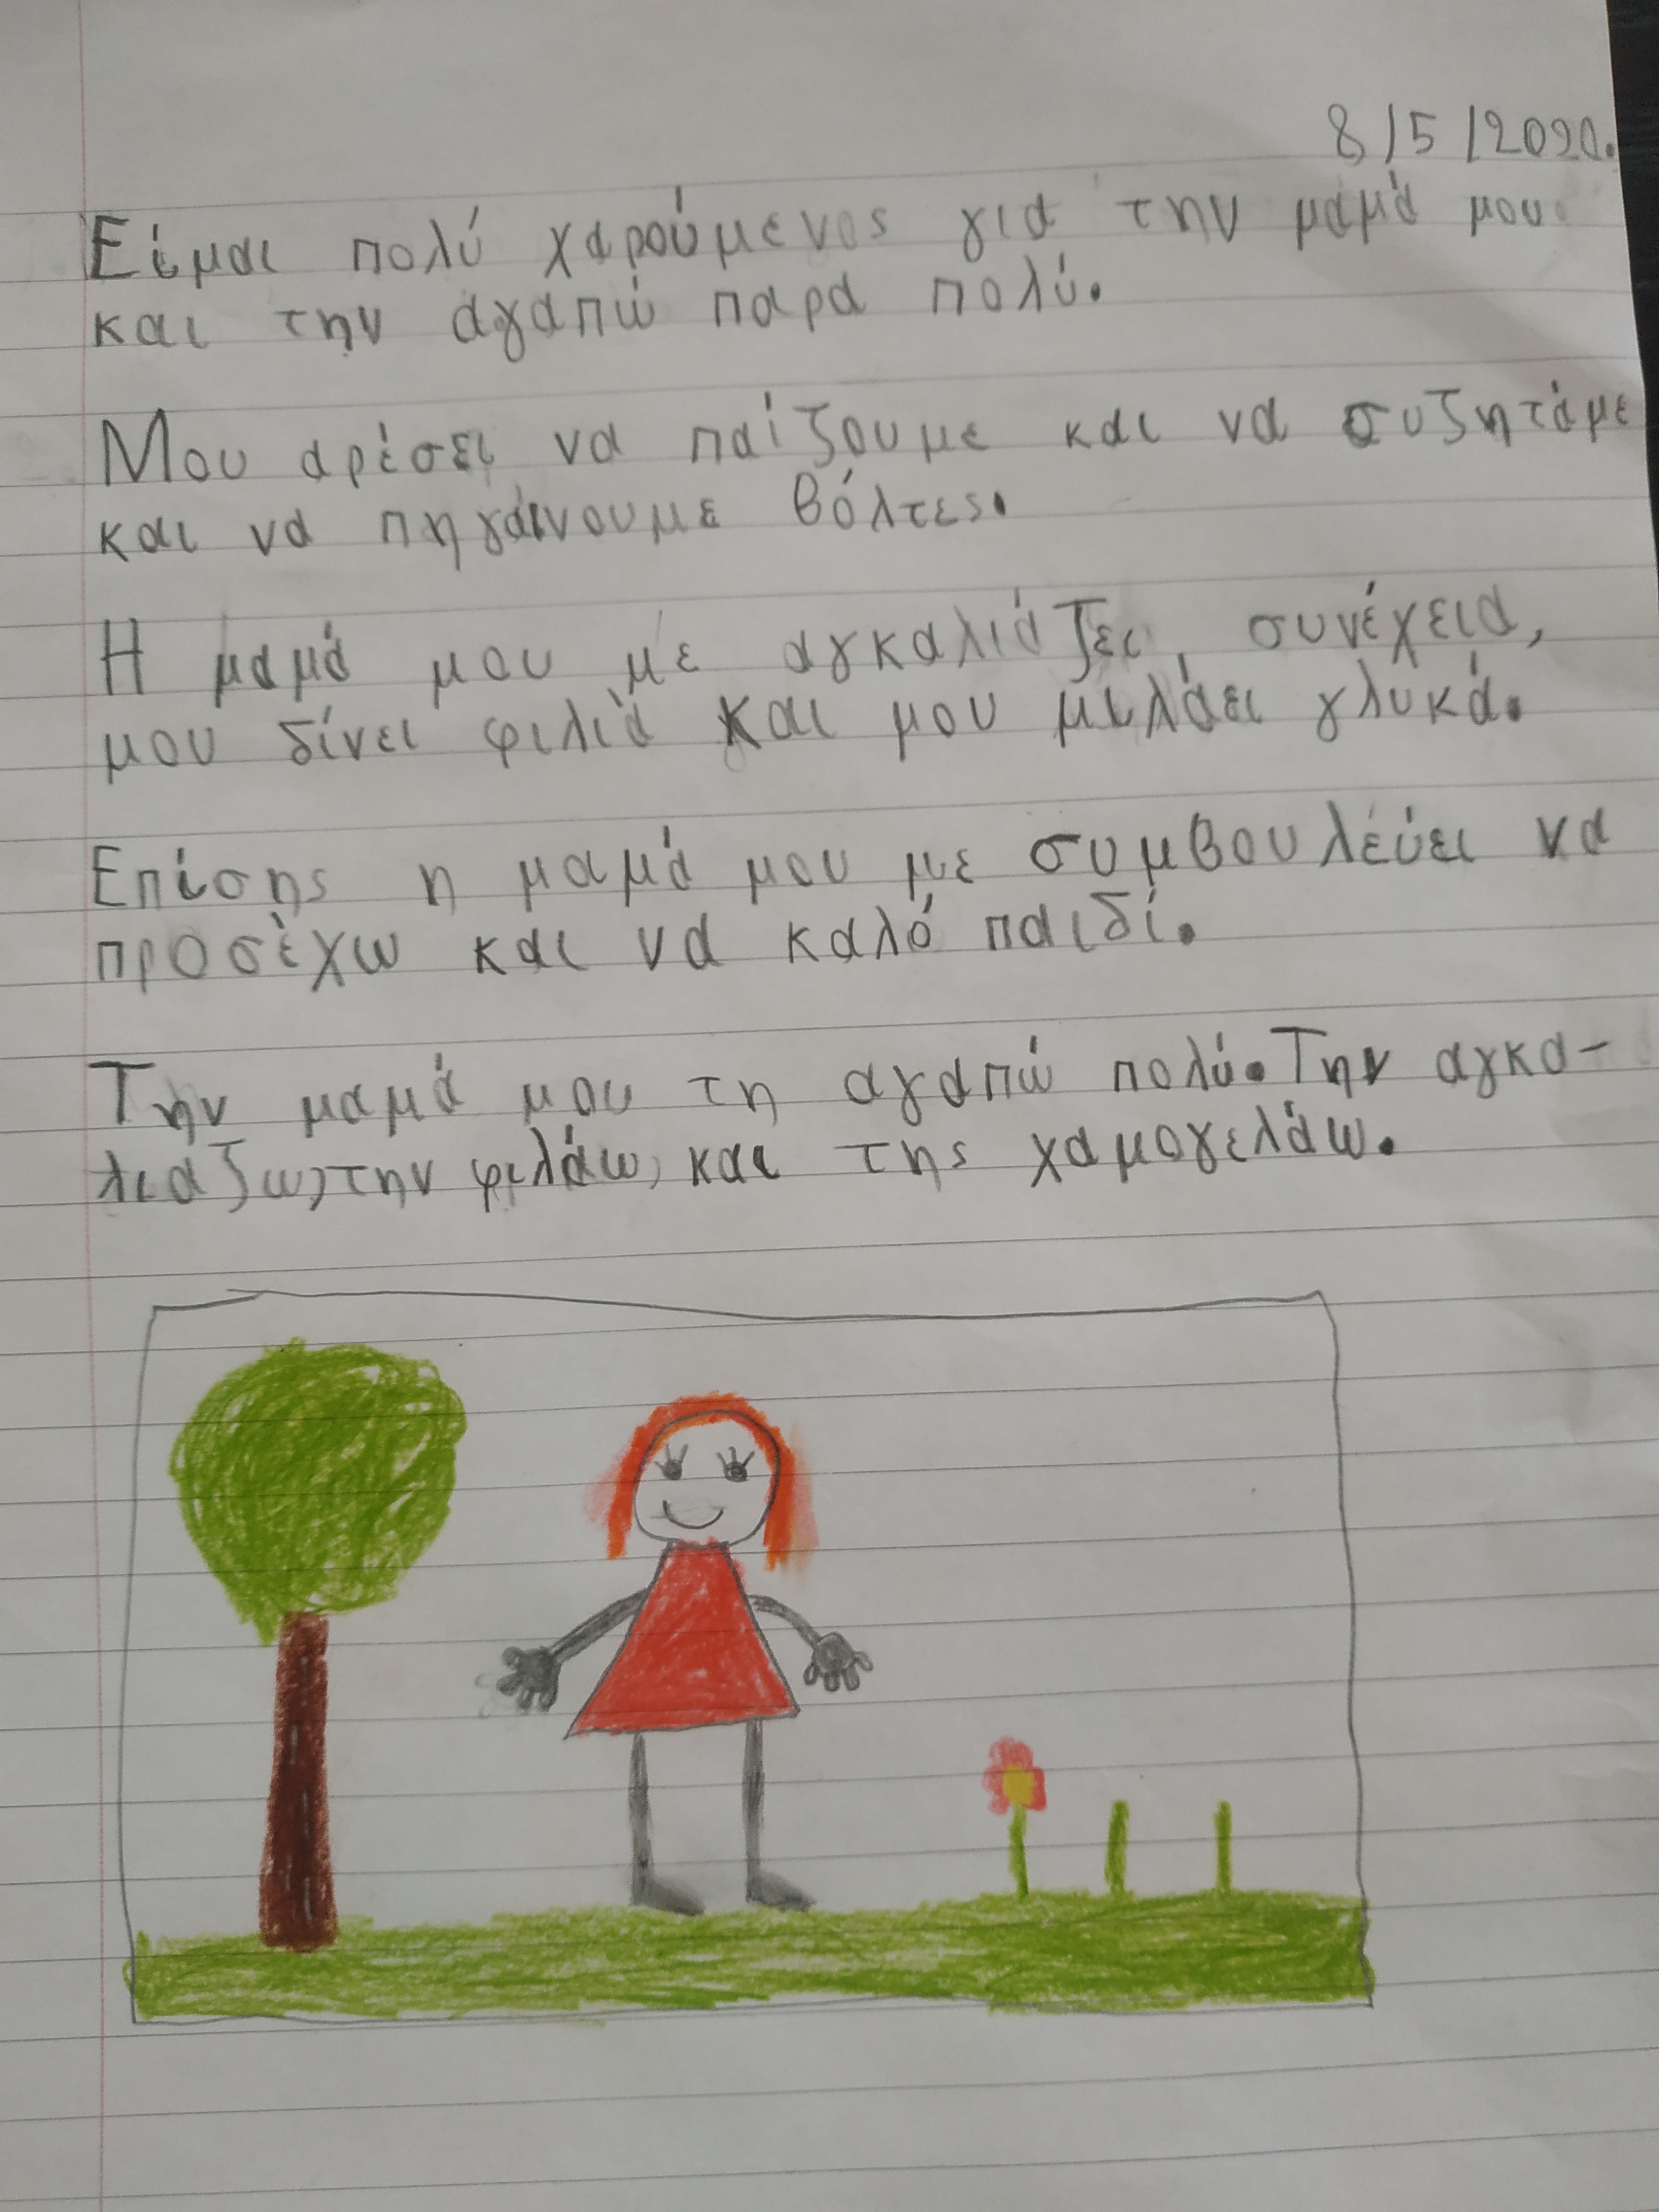 8/5/2020.
Είμαι πολύ χαρούμενος για την μαμά μου
και την αγαπώ παρα πολύ.
Μου αρέσει να παίζουμε και να συζητάμε
και να πηγάινουμε βόλτες.
Η μαμά μου με αγκαλιάζει, συνέχεια,
μου δίνει φιλιά και μου μιλάει γλυκά.
Επίσης η μαμά μου με συμβουλέύει να
προσέχω και να καλό παιδί.
Την μαμά μου τη αγαπώ πολύ. Την αγκα-
λιαζω, την φιλάω, και της χαμογελάω.